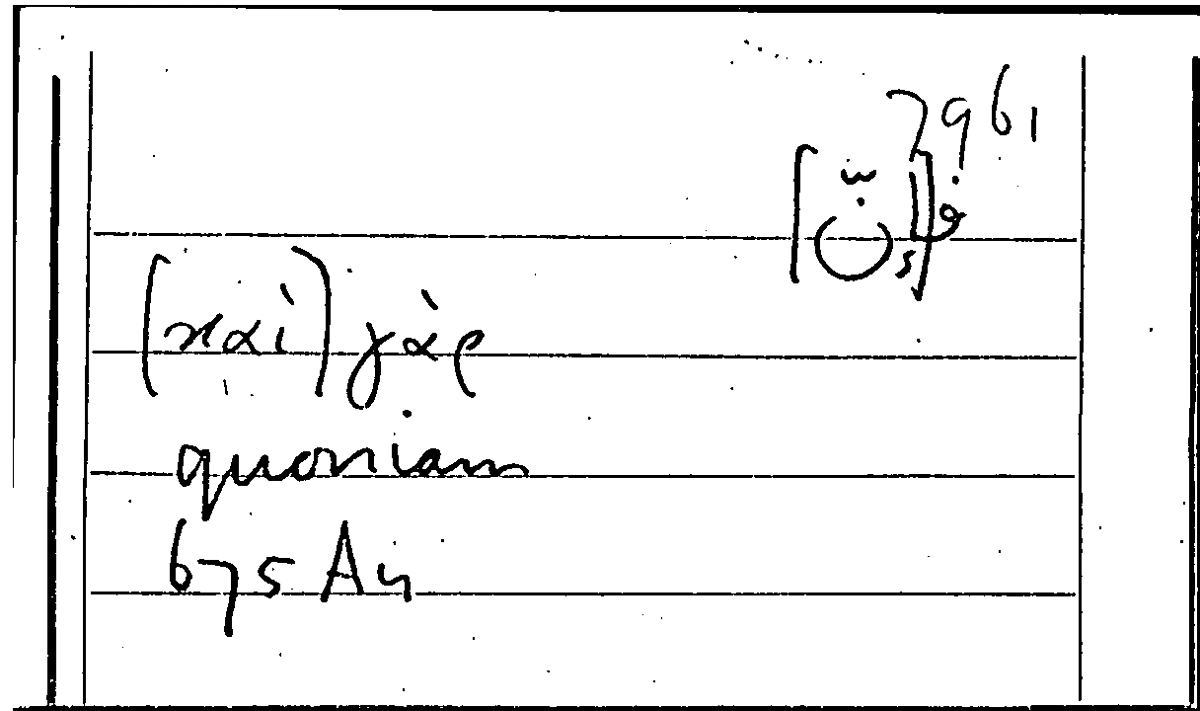 7961
(καὶ) γὰρ
quoniam
675 A4